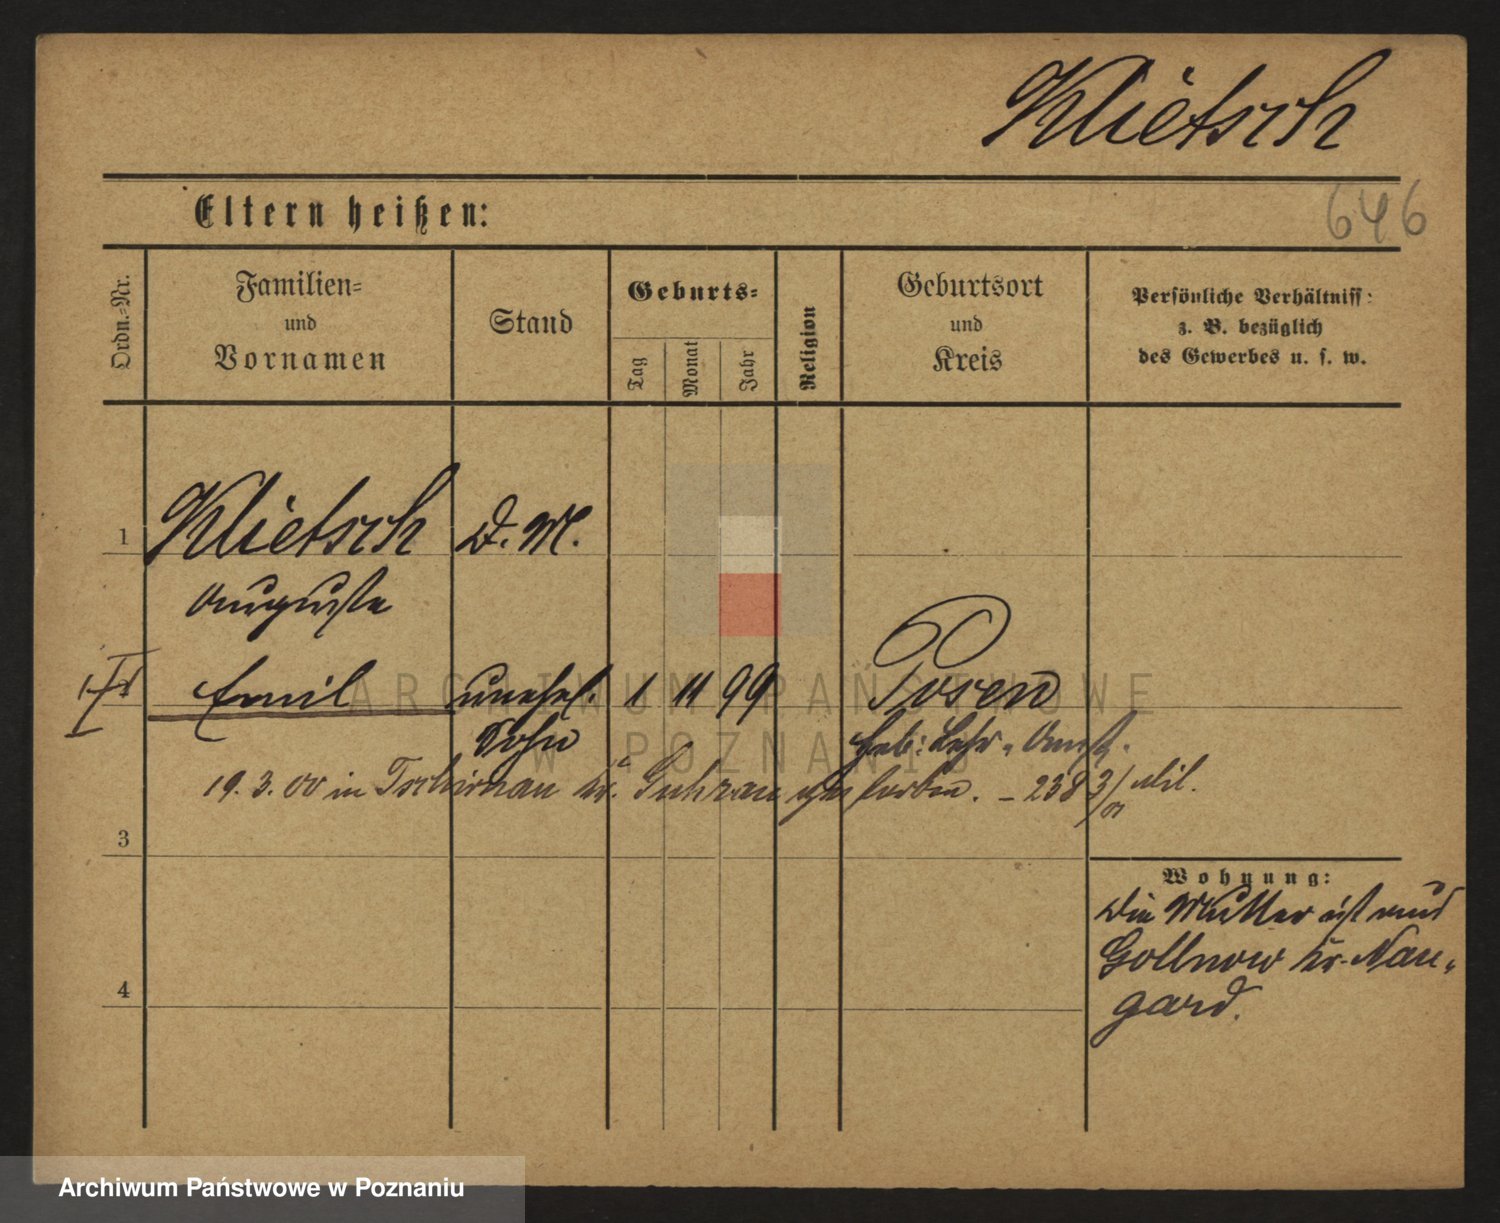 Klietsch
Eltern heißen:
646
Ordn.=Nr.
Familien=
und
Vornamen
Stand
Geburts=
Tag
Monat
Jahr
Religion
Geburtsort
und
Kreis
Persönliche Verhältniss:
z. B. bezüglich
des Gewerbes u. s. w.
1 Klietsch D. M.
Auguste
Emil unehel. 1 11 99 Posen
Sohn Heb: Lehr=Anst.
19. 3. 00 in Tschirnau Kr. Guhrau gestorben. – 238 3/01 Mil.
3
Wohnung:
Die Mutter ist aus
Gollnow Kr. Nau=
gard.
4
ARCHIWUM PAŃSTWOWE
W POZNANIU
Archiwum Państwowe w Poznaniu